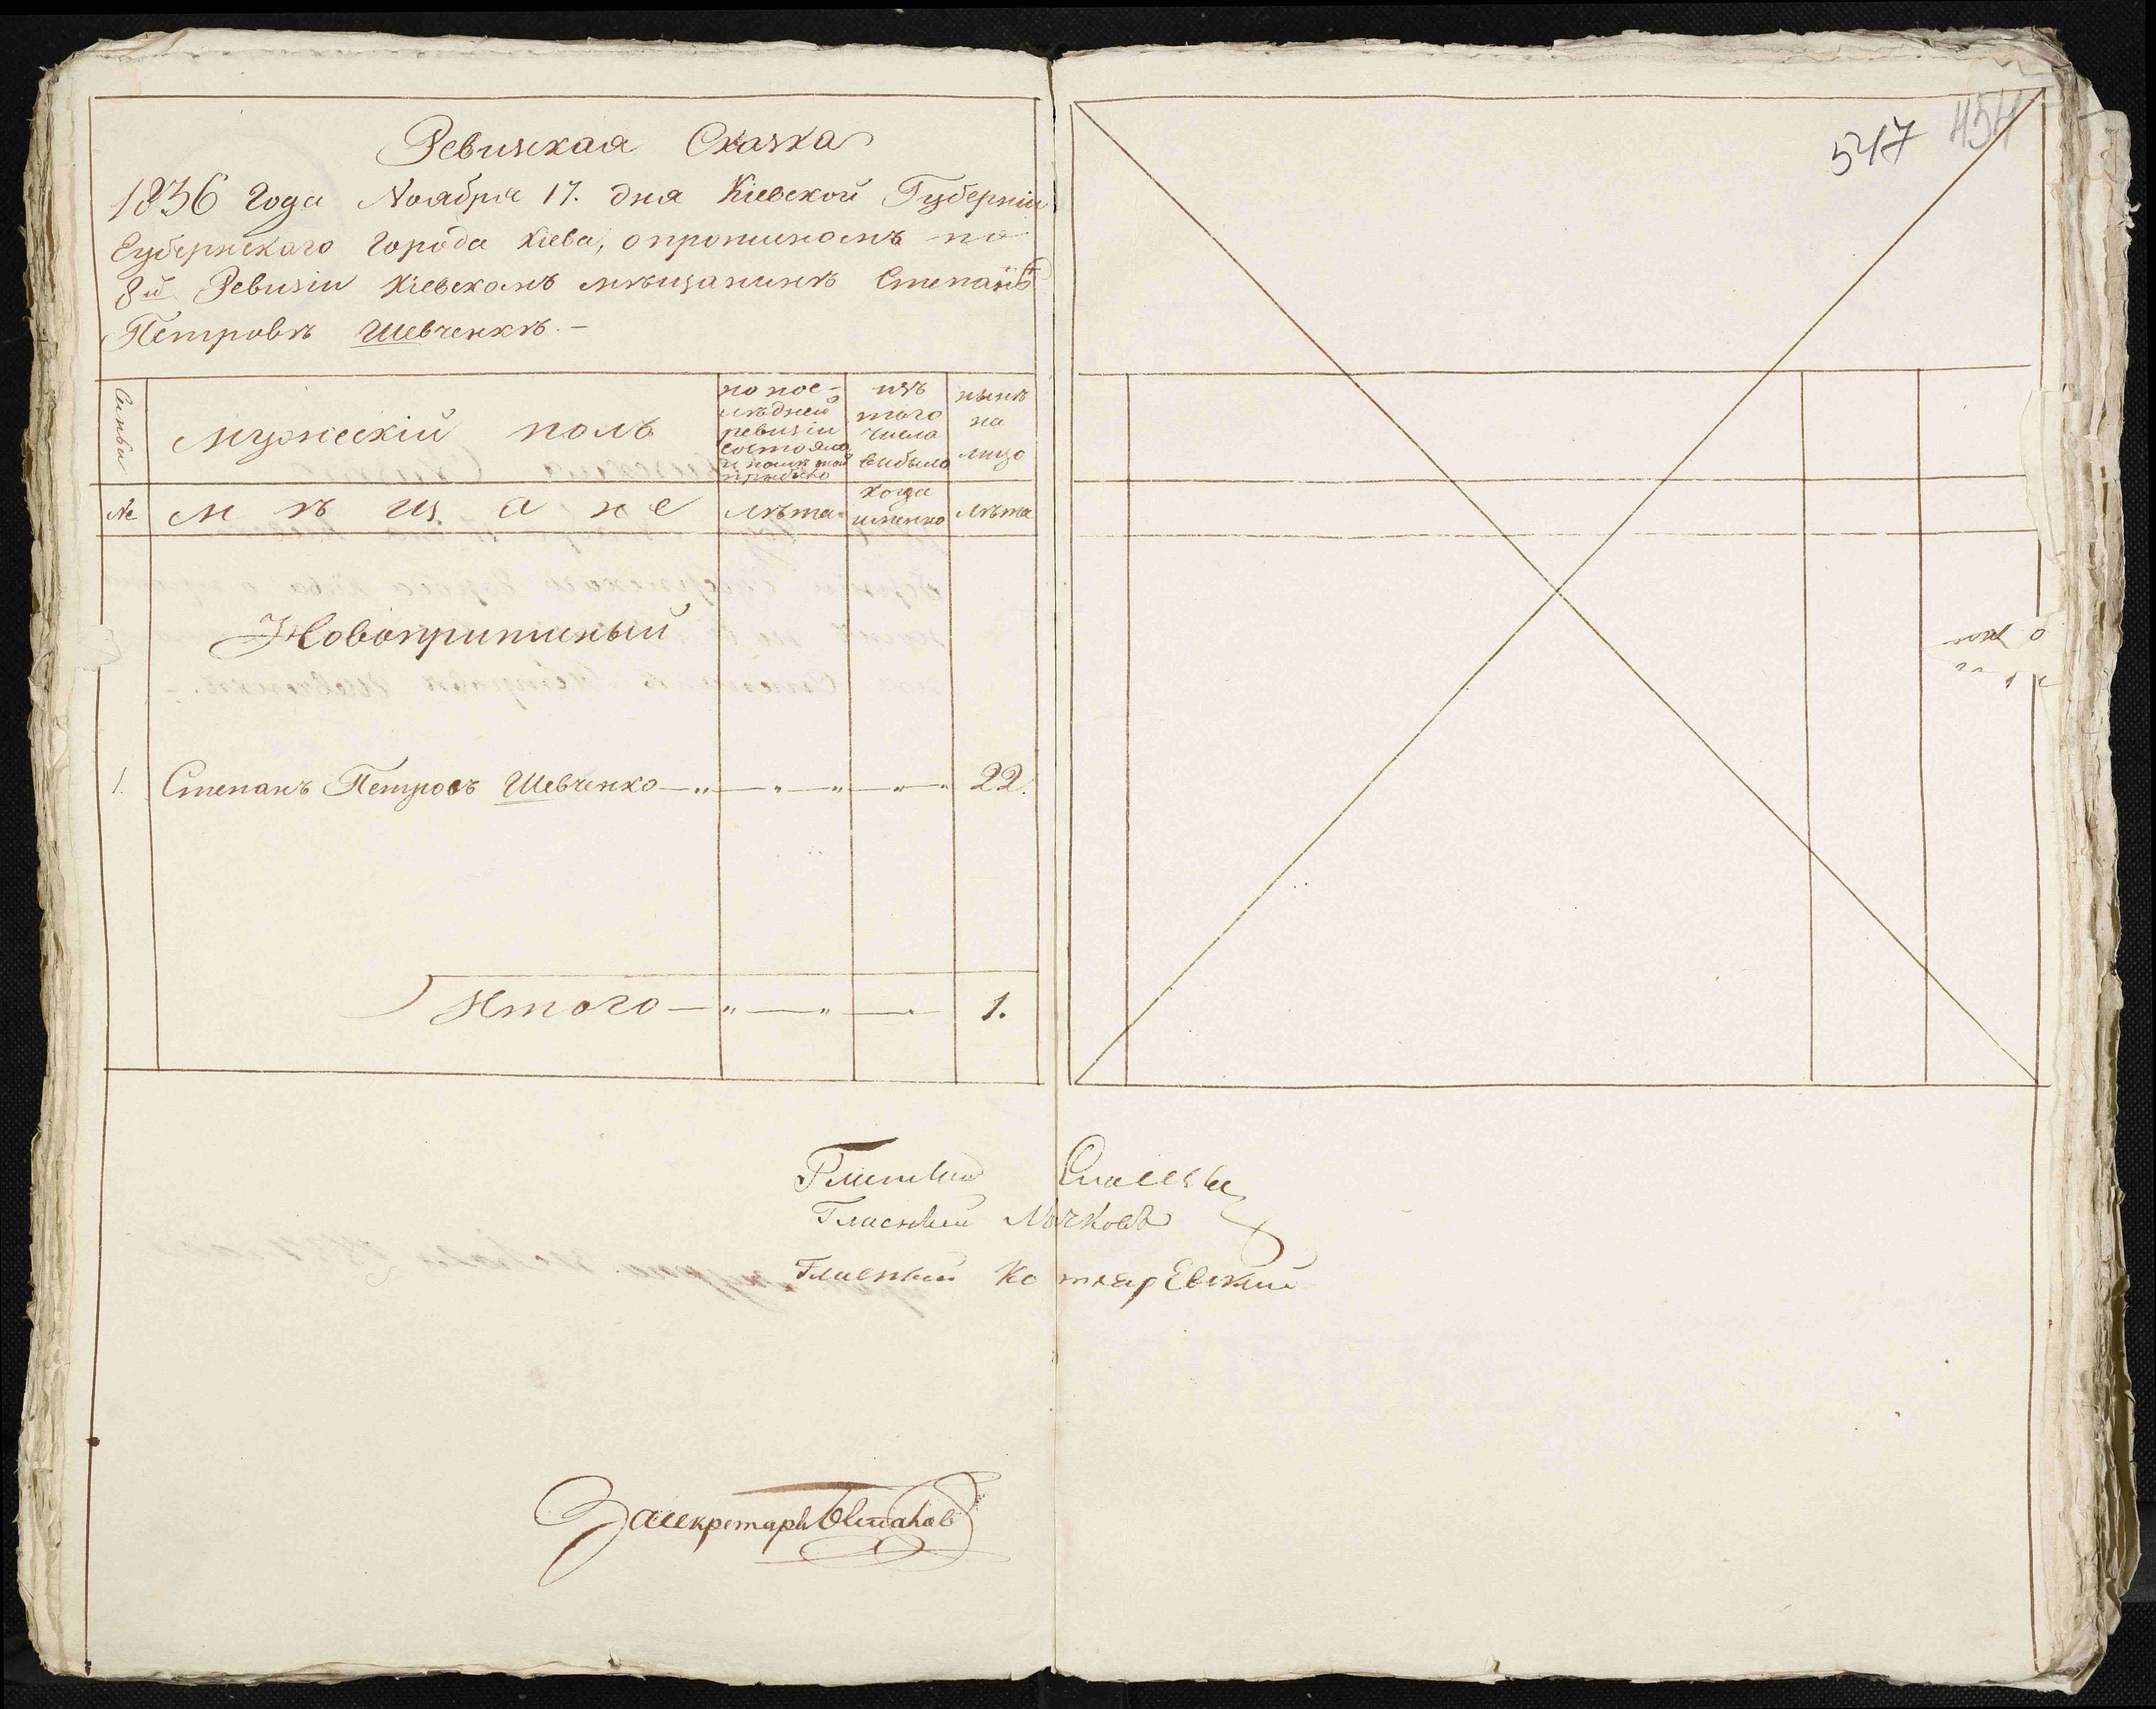 Ревизская Сказка
1836 года Ноября 17. дня Кіевской Губерніи
Губернскаго города Кіева, о пропиномъ по
8й Ревизіи Кіевскомъ мѣщанинѣ Степанѣ
Петровѣ Шевченкѣ. —
Семьи
Мужескій полъ
по пос-
лѣдней
ревизіи
состояло
и послѣ той
прибыло
изъ
того
числа
выбыло
нынѣ
на
лицо
№
мѣщане
лѣта
когда
именно
лѣта
Новоприписный
1. Степанъ Петровъ Шевченко — 22.
Итого — 1.
Гласный
Гласный
Гласный Котляревский
За секретаря
547 454